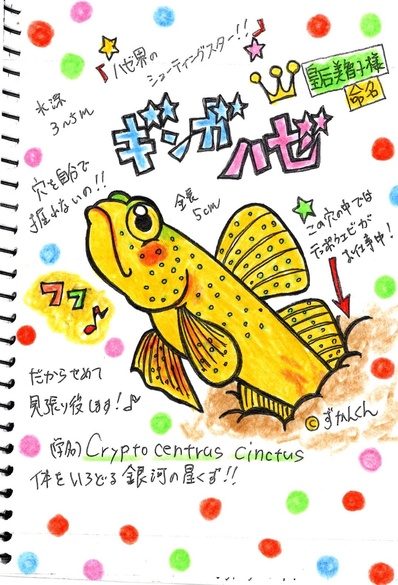 ハゼ界の
シューティングスター!!
皇后美智子様
命名
ギンガハゼ
水深
3~5m
全長
5cm
穴を自分で
掘れないの!!
この穴の中では
テッポウエビが
お仕事中!
フフ♪
だからせめて
見張り役します!♪
©ずかんくん
(学名) Cryptocentrus cinctus
体をいろどる銀河の星くず!!